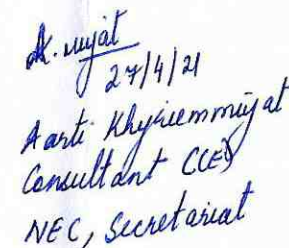 A. mujat
27/4/21
Aarti Khyriemmujat
Consultant CCED
NEC, Secretariat